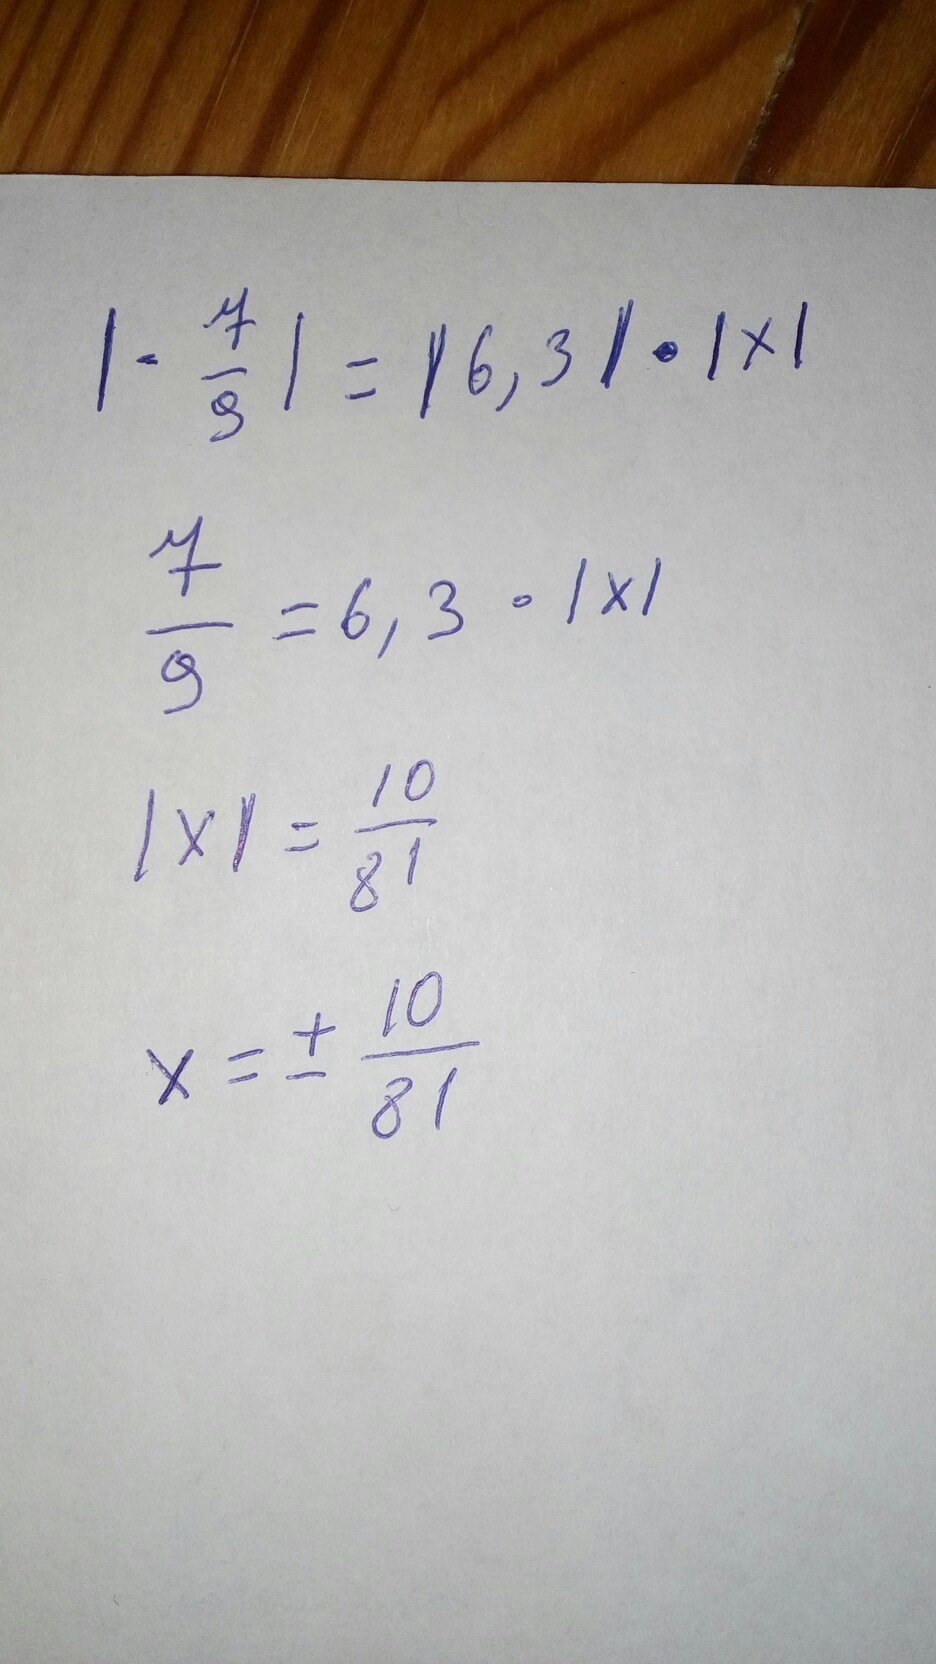 |- 7/9| = |6,3| • |x|
7/9 = 6,3 • |x|
|x| = 10/81
x = ± 10/81